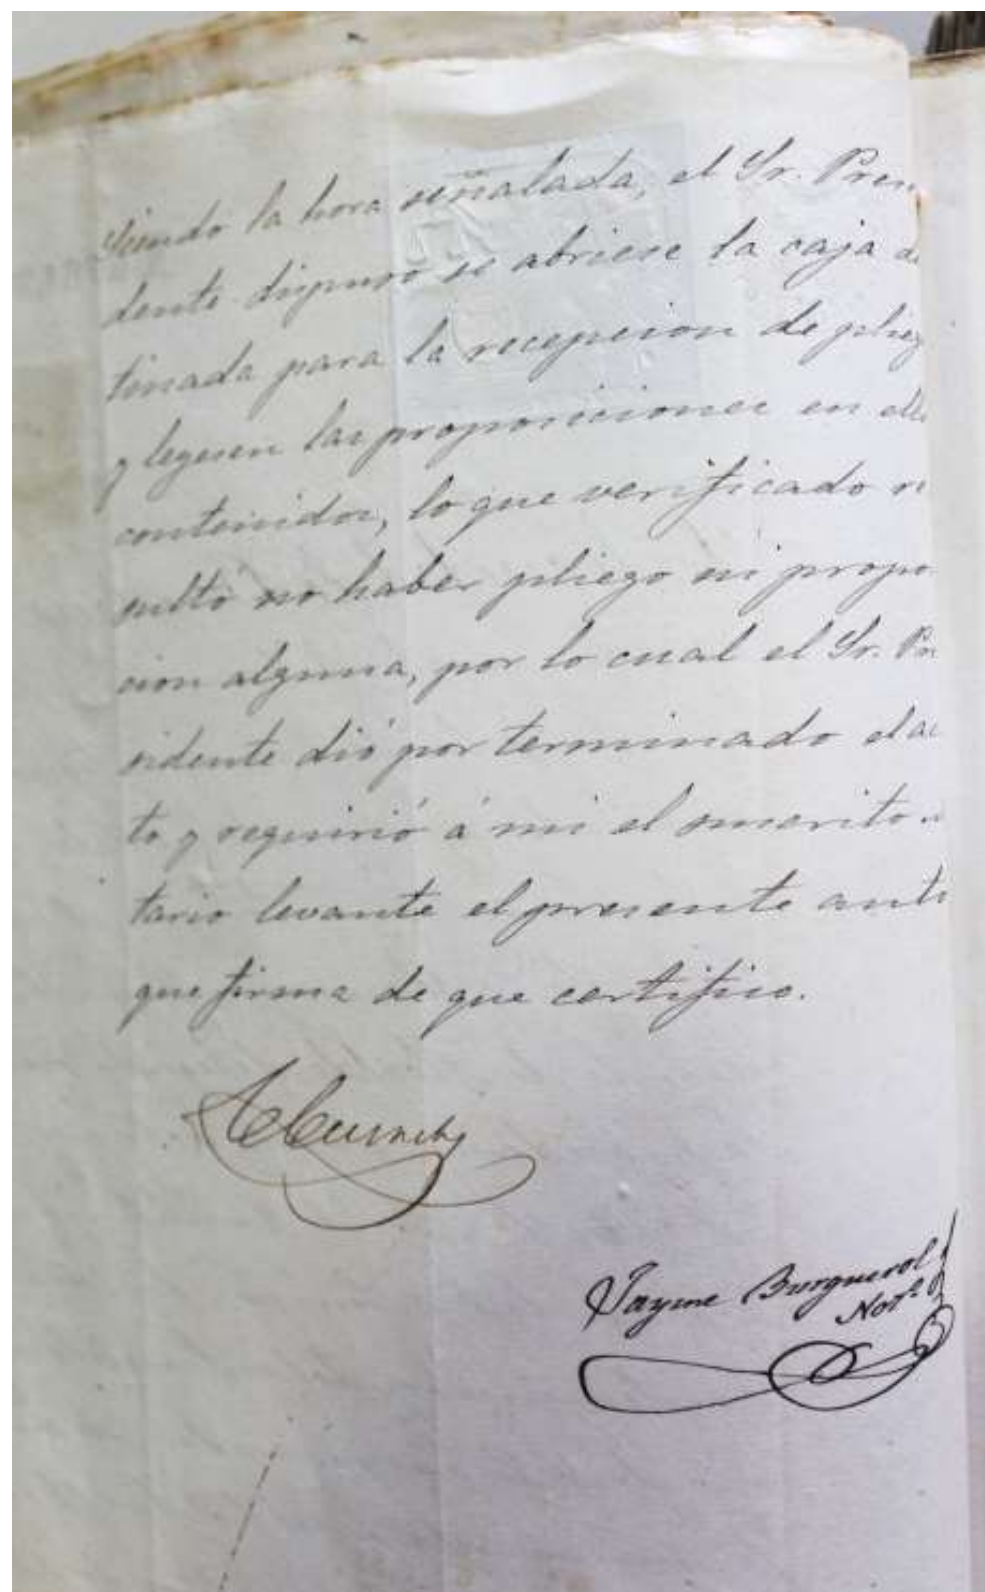 Siendo la hora señalada, el Sr. Presi
dente dispuso se abriese la caja des
tinada para la recepcion de plieg
y leyesen las proposiciones en ello
contenidos, lo que verificado re
sultó no haber pliego ni propo
cion alguna, por lo cual el Sr. Pre
sidente dió por terminado el ac
to y requirió á mi el
tario levante el presente
que firma de que certifico.
Jayme Burguerol
Not.